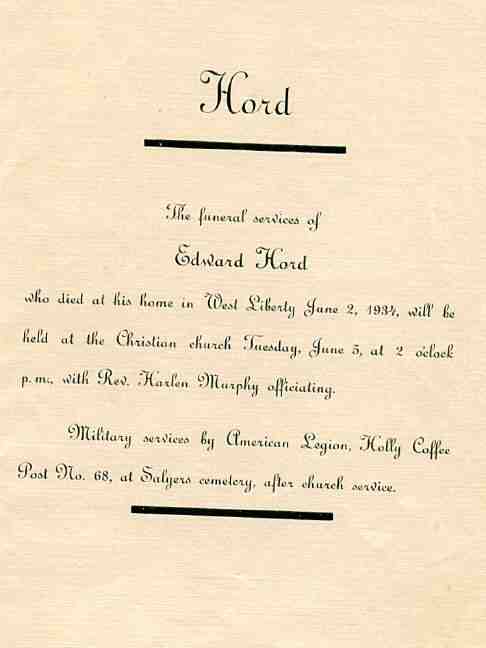 Hord
The funeral services of
Edward Hord
who died at his home in West Liberty June 2, 1934, will be
held at the Christian church Tuesday, June 5, at 2 o'clock
p. m., with Rev. Harlen Murphy officiating.
Military services by American Legion, Holly Coffee
Post No. 68, at Salyers cemetery, after church service.